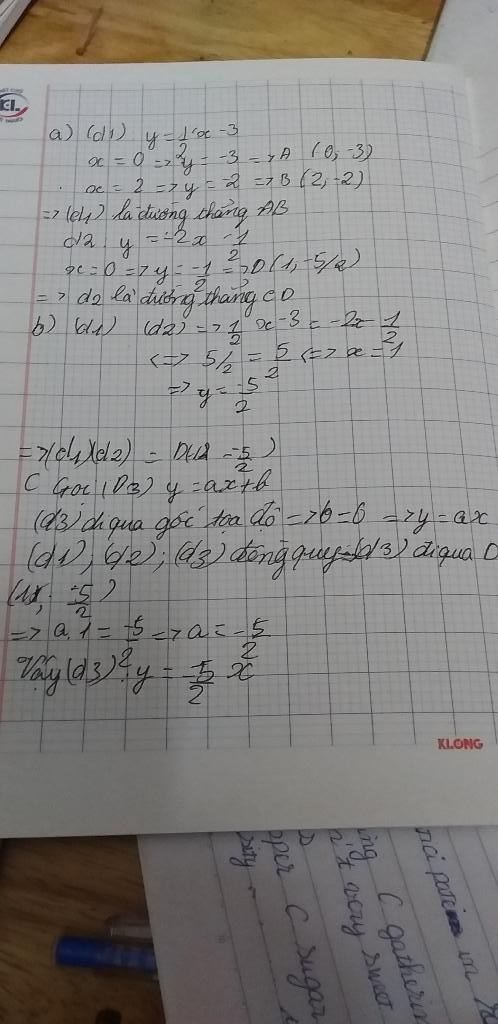 KL
a) (d1) y = 1/2 x - 3
x = 0 => y = -3 => A (0, -3)
x = 2 => y = -2 => B (2, -2)
=> (d1) là đường thẳng AB
d2 y = -2x - 1/2
x = 0 => y = -1/2 => D (1, -5/2)
=> d2 là đường thẳng CD
b) (d1) (d2) => 1/2 x - 3 = -2x - 1/2
<=> 5/2 = 5/2 <=> x = 1
=> y = -5/2
=> (d1)(d2) = D( -5/2)
C Gọi (D3) y = ax + b
(d3) đi qua gốc tọa độ => b = 0 => y = ax
(d1), (d2); (d3) đồng quy (d3) đi qua D
(1; -5/2)
=> a.1 = -5/2 => a = -5/2
Vậy (d3) : y = -5/2 x
KLONG
C gatherin
C sugar